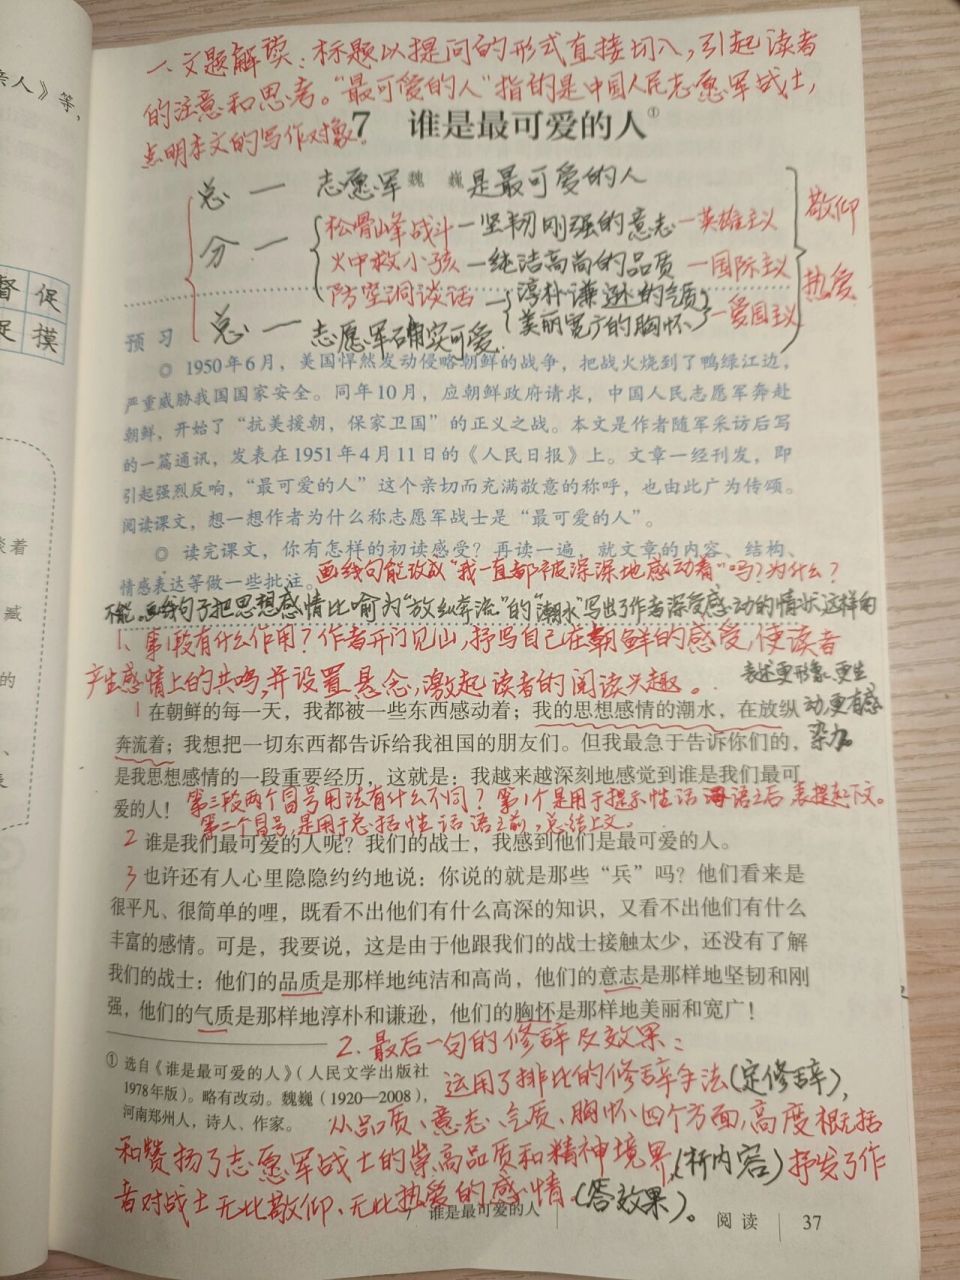 亲人》等,
一、文题解读：标题以提问的形式直接切入,引起读者
的注意和思考。“最可爱的人”指的是中国人民志愿军战士,
点明本文的写作对象。
7 谁是最可爱的人①
魏 巍
总一 志愿军是最可爱的人
分一
松骨峰战斗一坚韧刚强的意志一英雄主义
火中救小孩一纯洁高尚的品质一国际主义
防空洞谈话一淳朴谦逊的气质
美丽宽广的胸怀一爱国主义
敬仰
热爱
总一 志愿军确实可爱.
督 促
促 摸
预 习
◎ 1950年6月，美国悍然发动侵略朝鲜的战争，把战火烧到了鸭绿江边，
严重威胁我国国家安全。同年10月，应朝鲜政府请求，中国人民志愿军奔赴
朝鲜，开始了“抗美援朝，保家卫国”的正义之战。本文是作者随军采访后写
的一篇通讯，发表在1951年4月11日的《人民日报》上。文章一经刊发，即
引起强烈反响，“最可爱的人”这个亲切而充满敬意的称呼，也由此广为传颂。
阅读课文，想一想作者为什么称志愿军战士是“最可爱的人”。
◎ 读完课文，你有怎样的初读感受？再读一遍，就文章的内容、结构、
情感表达等做一些批注。
画线句能改成“我一直都被深深地感动着”吗？为什么？
不能。画线句子把思想感情比喻为“放纵奔流”的“潮水”写出了作者深受感动的情状,这样的
表述更形象、更生
动,更有感
染力。
1、第1段有什么作用？作者开门见山,抒写自己在朝鲜的感受,使读者
产生感情上的共鸣,并设置悬念,激起读者的阅读兴趣。
1 在朝鲜的每一天，我都被一些东西感动着；我的思想感情的潮水，在放纵
奔流着；我想把一切东西都告诉给我祖国的朋友们。但我最急于告诉你们的，
是我思想感情的一段重要经历，这就是：我越来越深刻地感觉到谁是我们最可
爱的人！
第三段两个冒号用法有什么不同？第1个是用于提示性话语之后表提起下文。
第二个冒号是用于总括性话语之前,总结上文。
2 谁是我们最可爱的人呢？我们的战士，我感到他们是最可爱的人。
3 也许还有人心里隐隐约约地说：你说的就是那些“兵”吗？他们看来是
很平凡、很简单的哩，既看不出他们有什么高深的知识，又看不出他们有什么
丰富的感情。可是，我要说，这是由于他跟我们的战士接触太少，还没有了解
我们的战士：他们的品质是那样地纯洁和高尚，他们的意志是那样地坚韧和刚
强，他们的气质是那样地淳朴和谦逊，他们的胸怀是那样地美丽和宽广！
2.最后一句的修辞及效果：
运用了排比的修辞手法(定修辞),
从品质、意志、气质、胸怀四个方面,高度概括
和赞扬了志愿军战士的崇高品质和精神境界,(析内容)抒发了作
者对战士无比敬仰、无比热爱的感情(答效果)。
① 选自《谁是最可爱的人》（人民文学出版社
1978年版）。略有改动。魏巍（1920—2008），
河南郑州人，诗人、作家。
谁是最可爱的人 阅读 37